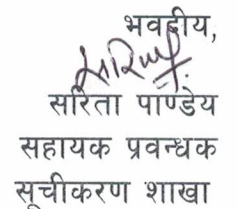 भवदीय,
सरिता पाण्डेय
सहायक प्रवन्धक
सूचीकरण शाखा